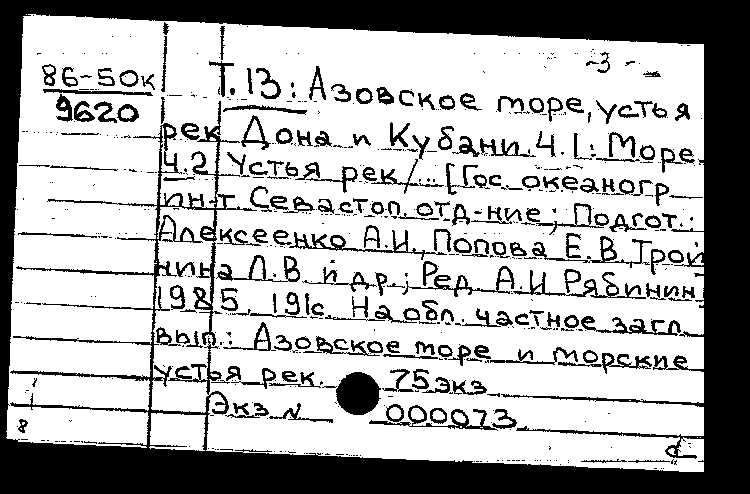 -3-
86-50к
9620
Т.13: Азовское море, устья
рек Дона и Кубани. Ч.1: Море.
Ч.2 Устья рек /... [Гос. океаногр
ин-т Севастоп. отд-ние; Подгот.:
Алексеенко А.И., Попова Е.В. Трой
нина Л.В. и др.; Ред. А.И Рябинин]
1985. 191с. На обл. частное загл.
вып.: Азовское море и морские
устья рек. 75экз
Экз № 000073
8